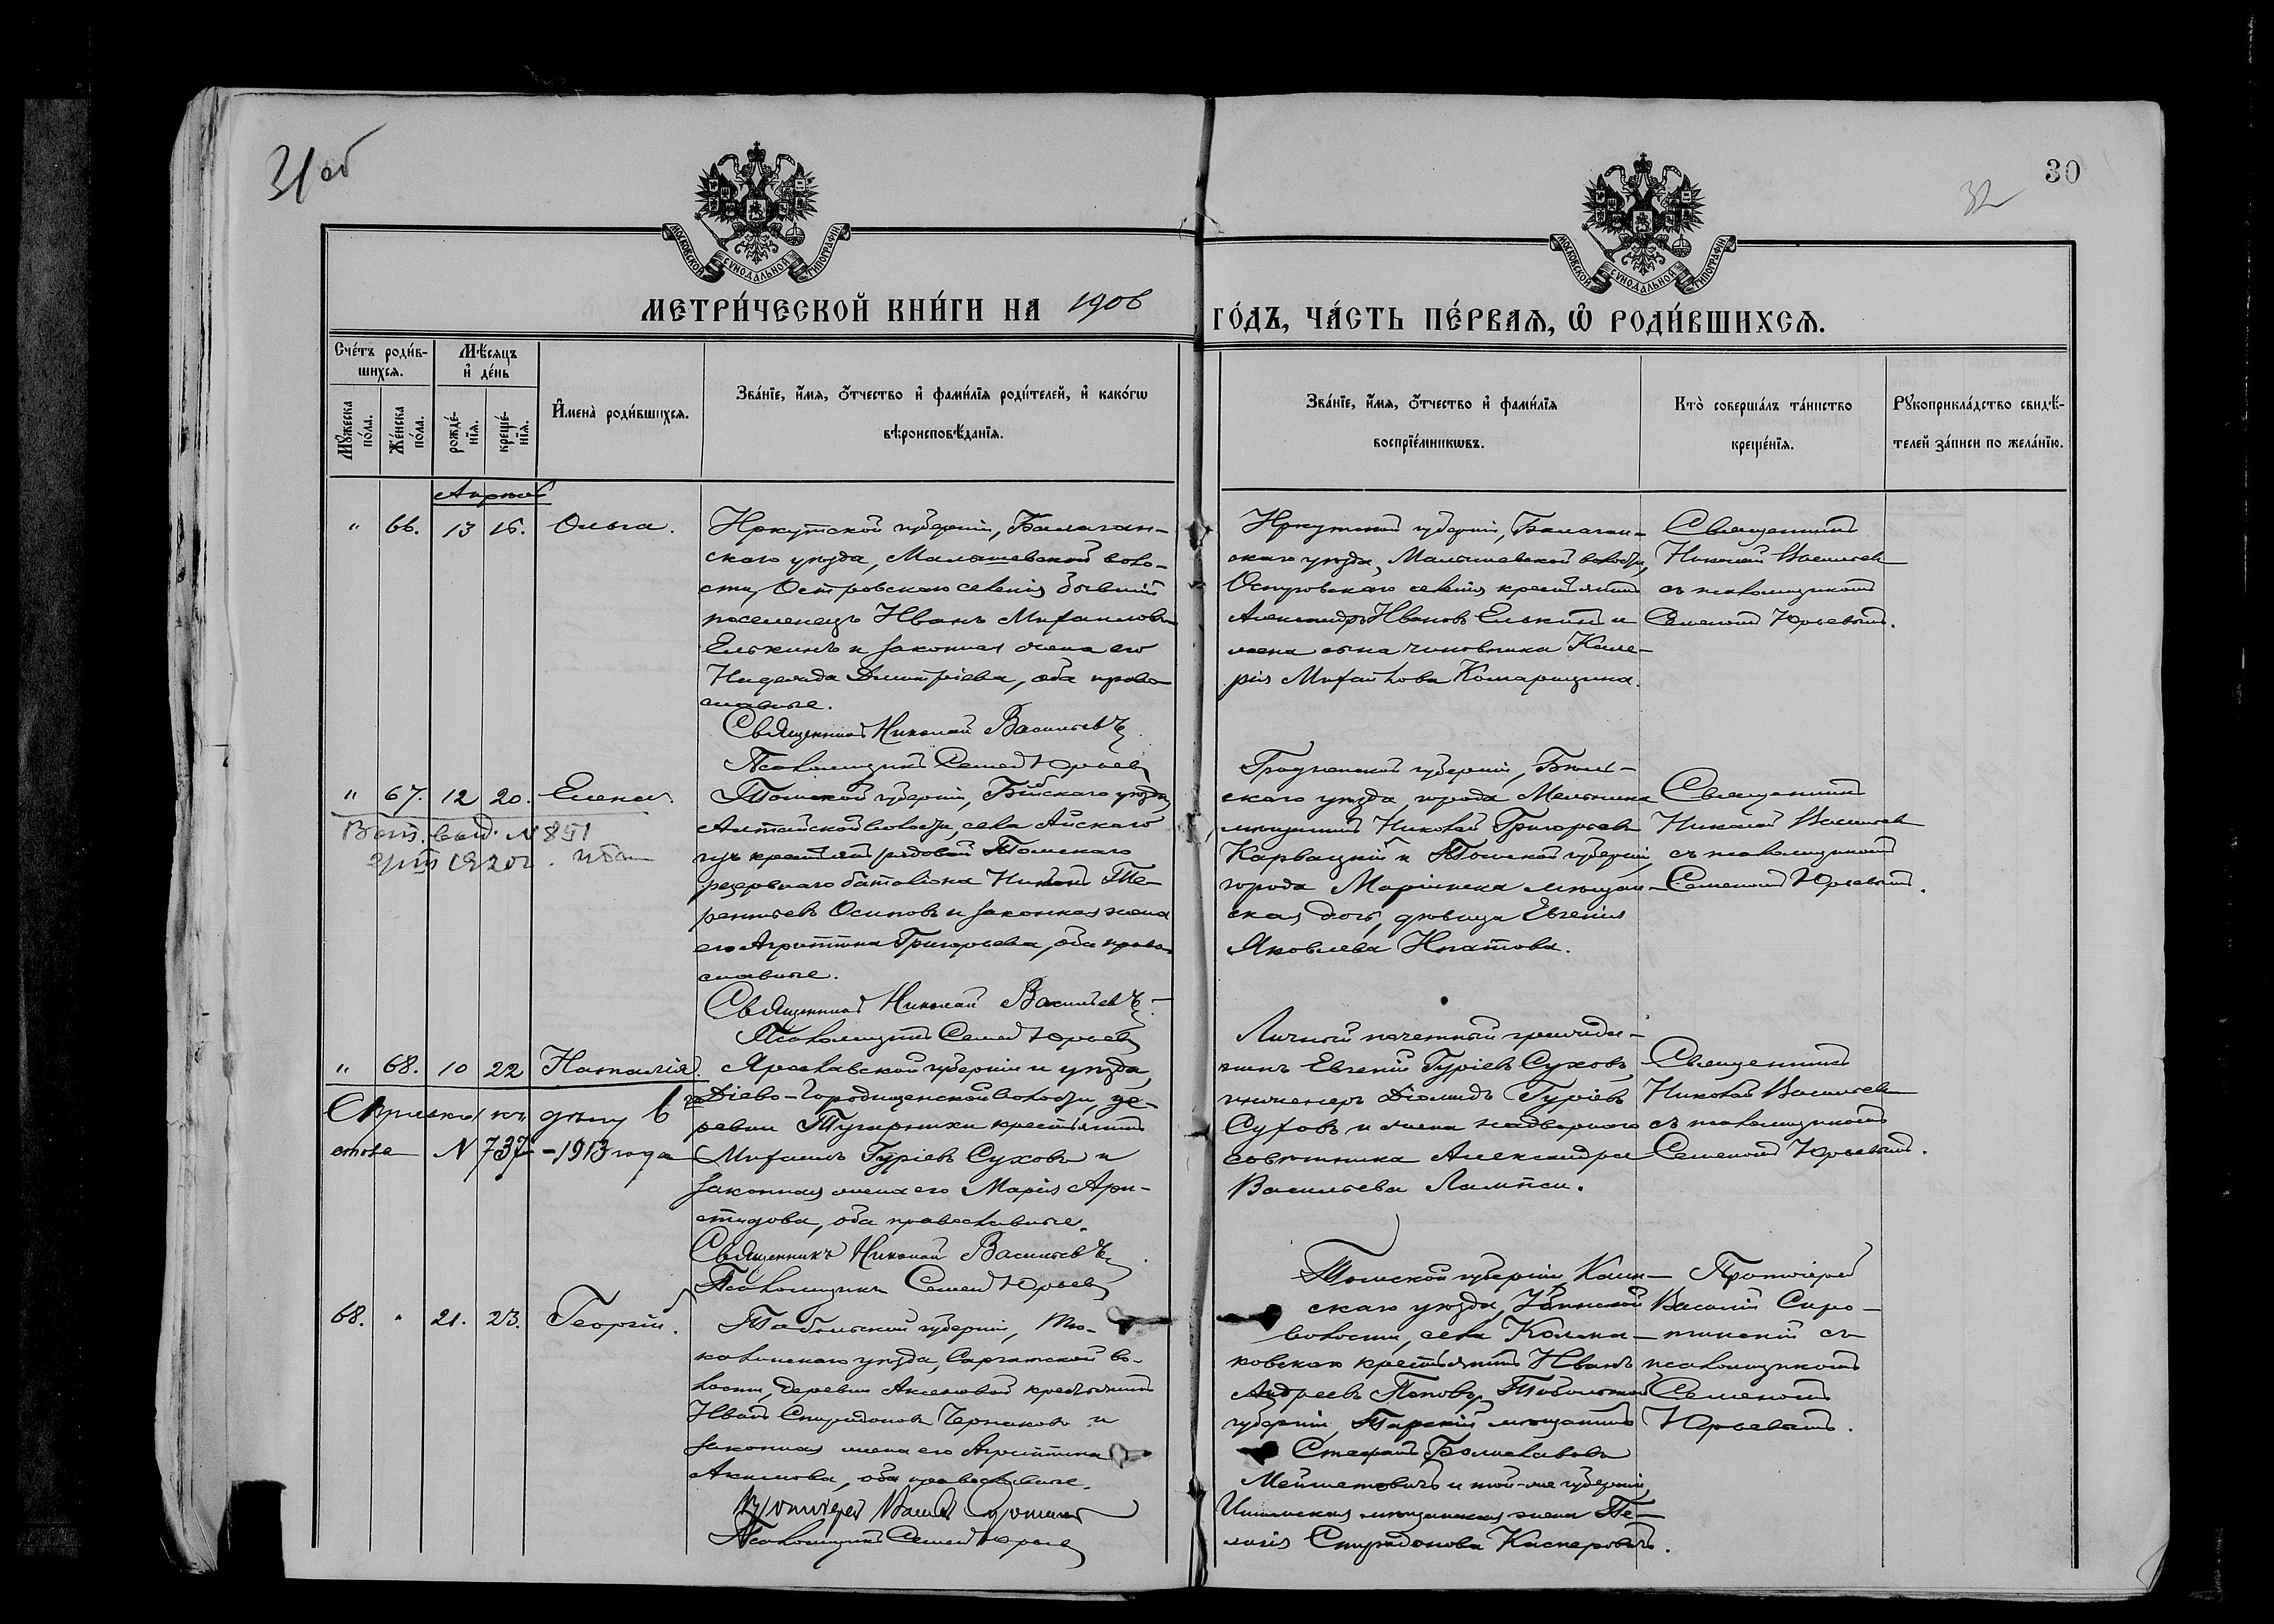 31 об
30
32
МОСКОВСКОЙ СУНОДАЛЬНОЙ ТИПОГРАФІИ
МОСКОВСКОЙ СУНОДАЛЬНОЙ ТИПОГРАФІИ
МЕТРИ́ЧЕСКОЙ КНИ́ГИ НА 1906
ГО́ДЪ, ЧА́СТЬ ПЕ́РВАѦ, Ѡ҆ РОДИ́ВШИХСѦ.
Сче́тъ роди́в-
шихсѧ.
Мѣ́сѧцъ
и҆ де́нь
Мꙋ́жеска
по́ла.
Же́нска
по́ла.
рожде́-
нїѧ.
креще́-
нїѧ.
И҆мена̀ роди́вшихсѧ.
Зва́нїе, и҆́мѧ, ѻ҆́тчество и҆ фами́лїѧ роди́телей, и҆ како́гѡ
вѣроисповѣ́данїѧ.
Зва́нїе, и҆́мѧ, ѻ҆́тчество и҆ фами́лїѧ
воспрїе́мникѡвъ.
Кто̀ соверша́лъ та́инство
креще́нїѧ.
Рꙋкоприкла́дство свидѣ́-
телей за́писи по жела́нїю.
Апрѣль
" 66. 13 16. Ольга.
Иркутской губерніи, Балаган-
скаго уѣзда, Малышевской воло-
сти, Островскаго селенія бывшій
поселенецъ Иванъ Михаиловъ
Елькинъ и законная жена его
Надежда Димитріева, оба право-
славные.
Священникъ Николай Васильевъ
Псаломщикъ Семенъ Юрьевъ
Иркутской губерніи, Балаган-
скаго уѣзда, Малышевской волости,
Островскаго селенія крестьянинъ
Александръ Ивановъ Елькинъ и
жена сына чиновника Кале-
рія Михайлова Комарицына.
Священникъ
Николай Васильевъ
съ псаломщикомъ
Семеномъ Юрьевымъ.
" 67. 12 20. Елена.
№ 891
1920г.
Томской губерніи, Бійскаго уѣзда
Алтайской волости, села Айскаго
изъ крестьянъ рядовой Томскаго
резервнаго баталіона Те-
рентьевъ Осиповъ и законная жена
его Агриппина Григорьева, оба право-
славные.
Священникъ Николай Васильевъ
Псаломщикъ Семенъ Юрьевъ
Гродненской губерніи, Бѣль-
скаго уѣзда, города Мельника
мѣщанинъ Николай Григорьевъ
Карвацкій и Томской губерніи,
города Маріинска мѣщан-
ская дочь, дѣвица Евгенія
Яковлева Игнатова.
Священникъ
Николай Васильевъ
съ псаломщикомъ
Семеномъ Юрьевымъ.
" 68. 10 22 Наталія.
Справка къ дѣлу 6
стола № 737 - 1913 года
Ярославской губерніи и уѣзда,
Діево-Городищенской волости, де-
ревни крестьянинъ
Михаилъ Гуріевъ Суховъ и
законная жена его Марія Ари-
стидова, оба православные.
Священникъ Николай Васильевъ
Псаломщикъ Семенъ Юрьевъ
Личный почетный гражда-
нинъ Евгеній Гуріевъ Суховъ,
инженеръ Діомидъ Гуріевъ
Суховъ и жена надворнаго
совѣтника Александра
Васильева
Священникъ
Николай Васильевъ
съ псаломщикомъ
Семеномъ Юрьевымъ.
68. " 21. 23. Георгій.
Тобольской губерніи, Тю-
калинскаго уѣзда, Саргатской во-
лости, деревни Аксеновой крестьянинъ
Иванъ Спиридоновъ и
законная жена его Агриппина
Акимова, оба православные.
Протоіерей
Псаломщикъ Семенъ Юрьевъ
Томской губерніи, Каин-
скаго уѣзда, Убинской
волости, села Колма-
ковскаго крестьянинъ Иванъ
Андреевъ Поповъ, Тобольской
губерніи, Тарскій мѣщанинъ
Стефанъ Болиславовъ
и той-же губерніи,
Ишимская мѣщанская жена Пе-
лагія Спиридонова Касперовичъ.
Протоіерей
Василій Сиро-
тинскій съ
псаломщикомъ
Семеномъ
Юрьевымъ.